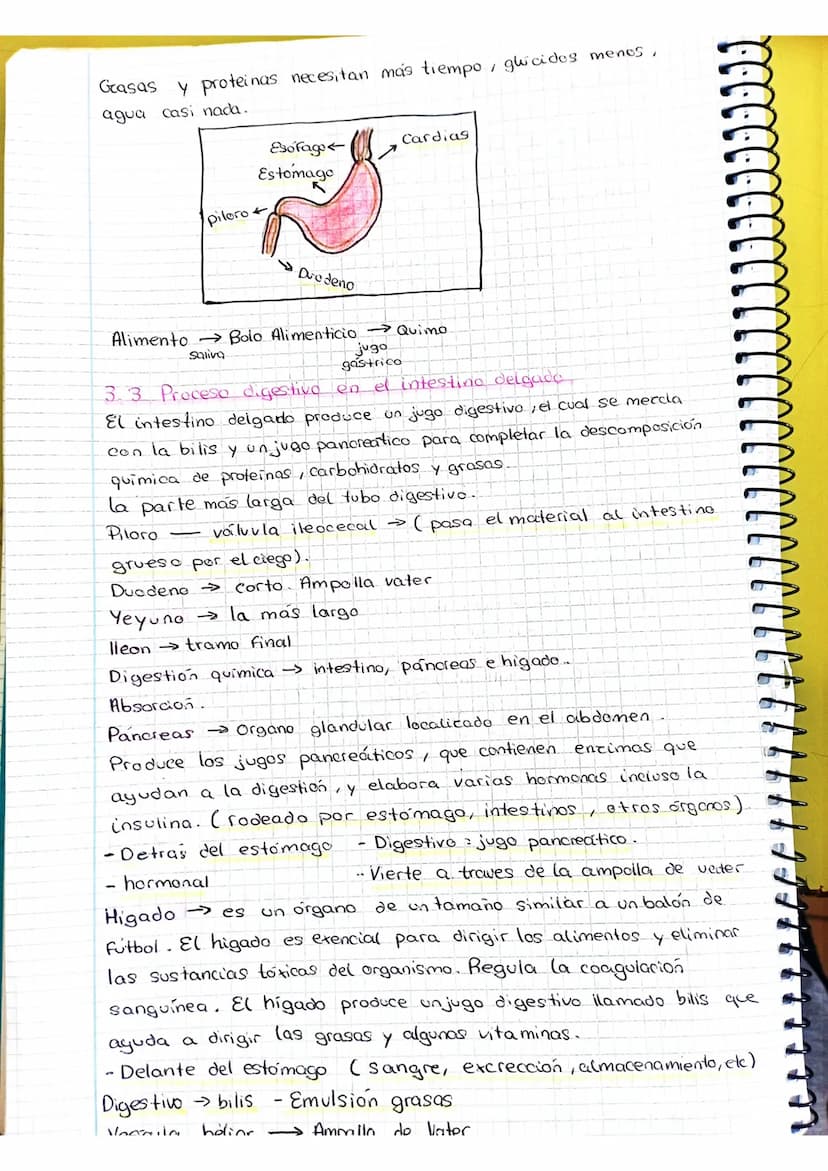 Grasas y proteinas necesitan más tiempo, glúcidos menos,
agua casi nada.
Esófago ←
Cardias
Estómago
piloro ←
Duodeno
Alimento → Bolo Alimenticio → Quimo
saliva
jugo
gástrico
3.3 Proceso digestivo en el intestino delgado
El intestino delgado produce un jugo digestivo, el cual se mezcla
con la bilis y un jugo pancreático para completar la descomposición
química de proteínas, carbohidratos y grasas.
la parte más larga del tubo digestivo.
Piloro — válvula ileocecal → (pasa el material al intestino
grueso por el ciego).
Duodeno → corto. Ampolla vater
Yeyuno → la más largo
Ileon → tramo final
Digestión química → intestino, páncreas e higado..
Absorción.
Páncreas → Organo glandular localizado en el abdomen.
Produce los jugos pancreáticos, que contienen enzimas que
ayudan a la digestión, y elabora varias hormonas incluso la
insulina. (rodeado por estómago, intestinos, otros órganos)
- Detrás del estómago - Digestivo: jugo pancreático.
- hormonal
- Vierte a traves de la ampolla de vater
Higado → es un órgano de un tamaño similar a un balón de
fútbol. El higado es exencial para dirigir los alimentos y eliminar
las sustancias tóxicas del organismo. Regula la coagulación
sanguínea. El hígado produce un jugo digestivo llamado bilis que
ayuda a dirigir las grasas y algunas vitaminas.
- Delante del estómago (sangre, excrección, almacenamiento, etc)
Digestivo → bilis - Emulsión grasas
→ Ampolla de Vater